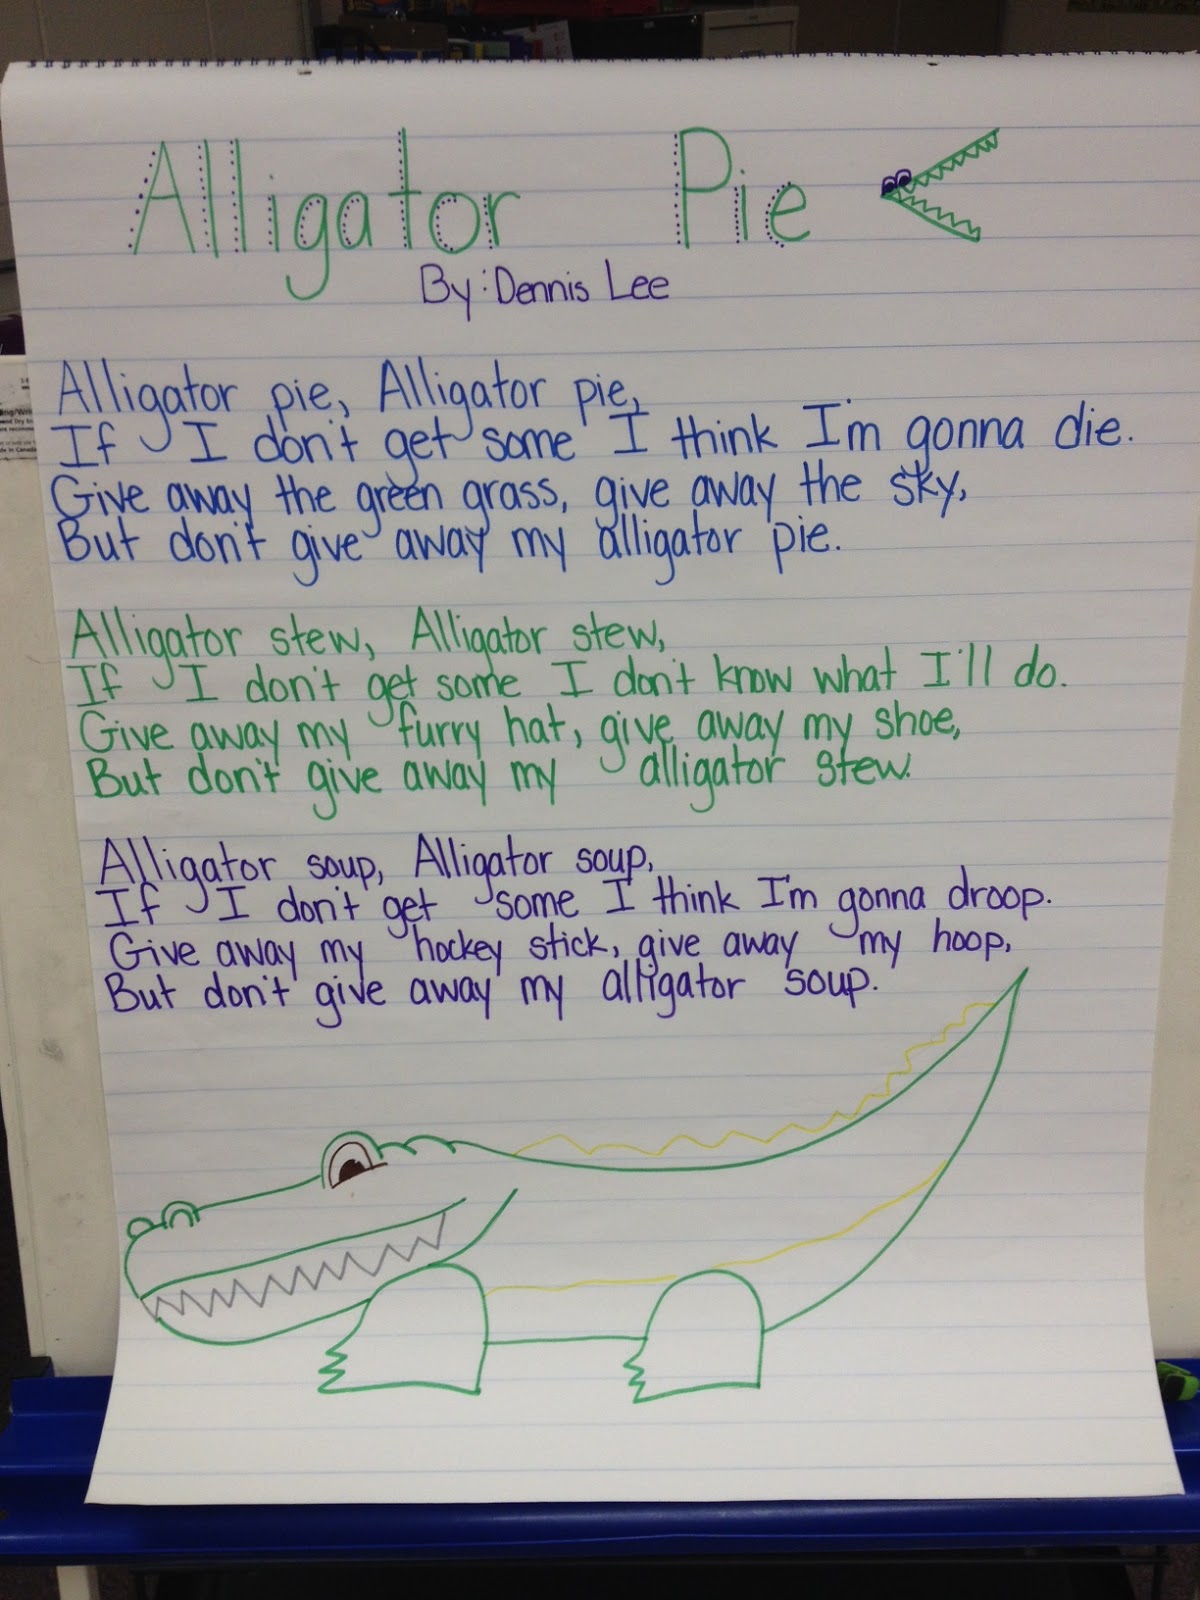 Alligator Pie
By: Dennis Lee
Alligator pie, Alligator pie,
If I don't get some I think I'm gonna die.
Give away the green grass, give away the sky,
But don't give away my alligator pie.
Alligator stew, Alligator stew,
If I don't get some I don't know what I'll do.
Give away my furry hat, give away my shoe,
But don't give away my alligator stew.
Alligator soup, Alligator soup,
If I don't get some I think I'm gonna droop.
Give away my hockey stick, give away my hoop,
But don't give away my alligator soup.